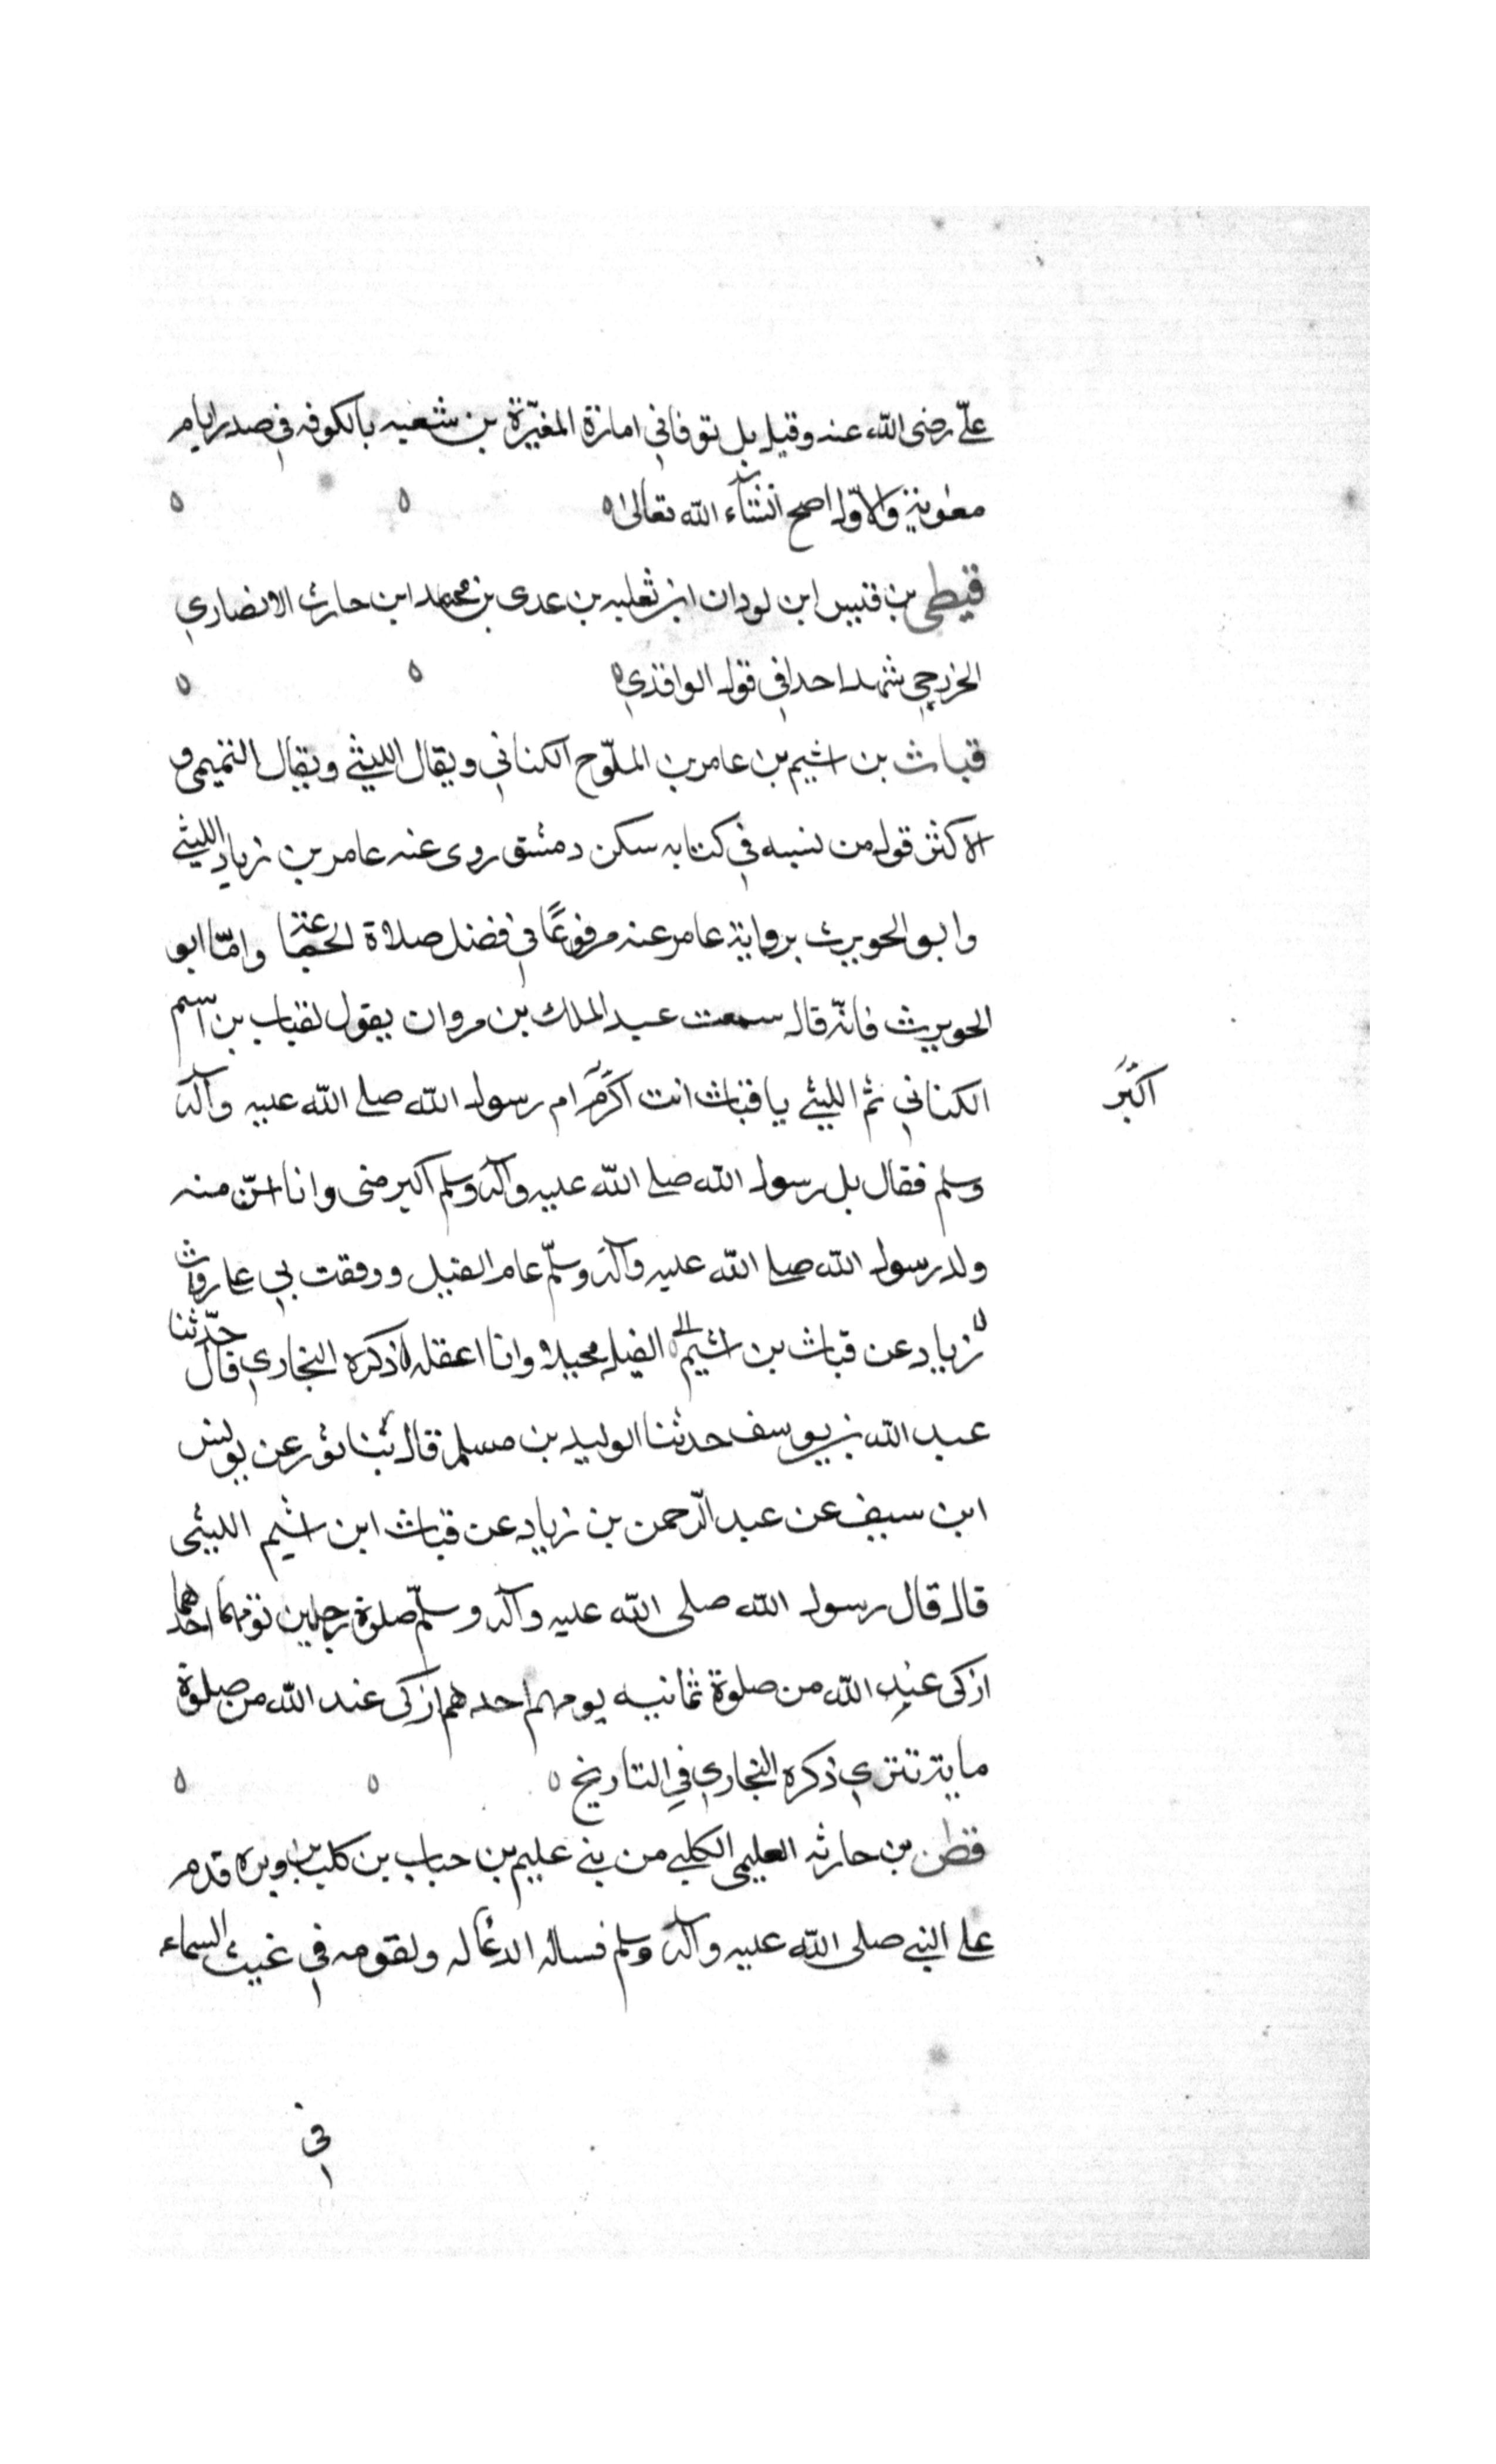 علىّ رضى الله عنه وقيل بل توفى فى امارة المغيرة بن شعبه بالكوفه فى صدر ايام
معوية والاوّل اصح انشآء الله تعالى
قيظى بن قيس ابن لوذان ابن ثعلبه بن عدى بن محمد ابن حارث الانصاري
الخزرجي شهد احدا فى قول الواقدي
قباث بن اشيم بن عامر بن الملوّح الكناني ويقال الليثي ويقال التميمى و
الاكثر قول من نسبه فى كتابه سكن دمشق روى عنه عامر بن زياد الليثي
وابو الحويرث برواية عامر عنه مرفوعًا في فضل صلاة الجماعة وامّا ابو
الحويرث فانّه قال سمعت عبد الملك بن مروان يقول لقباب بن اشيم
الكناني ثم الليثي يا قباث انت اكرم ام رسول الله صلى الله عليه وآله
اكبر
وسلم فقال بل رسول الله صلى الله عليه وآله وسلم اكبر منى وانا اسنّ منه
ولد رسول الله صلى الله عليه وآله وسلّم عام الفيل ووقفت بي على روث
زياد عن قباث بن اشيم الفيل محيلا وانا اعقله ذكره البخاري قال حدّثنا
عبد الله بن يوسف حدثنا الوليد بن مسلم قال ثنا ثور عن يونس
ابن سيف عن عبد الرحمن بن زياد عن قباث ابن اشيم الليثى
قال قال رسول الله صلى الله عليه وآله وسلّم صلوة رجلين يؤمهما احدهما
ازكى عند الله من صلوة ثمانيه يومهم احدهم ازكى عند الله من صلوة
ماية تترى ذكره البخاري في التاريخ
قطن بن حارثه العليمى الكلبي من بني عليم بن حباب بن كلب بن وبره قدم
على النبي صلى الله عليه وآله وسلم فساله الدعا له ولقومه فى غيث السماء
فى